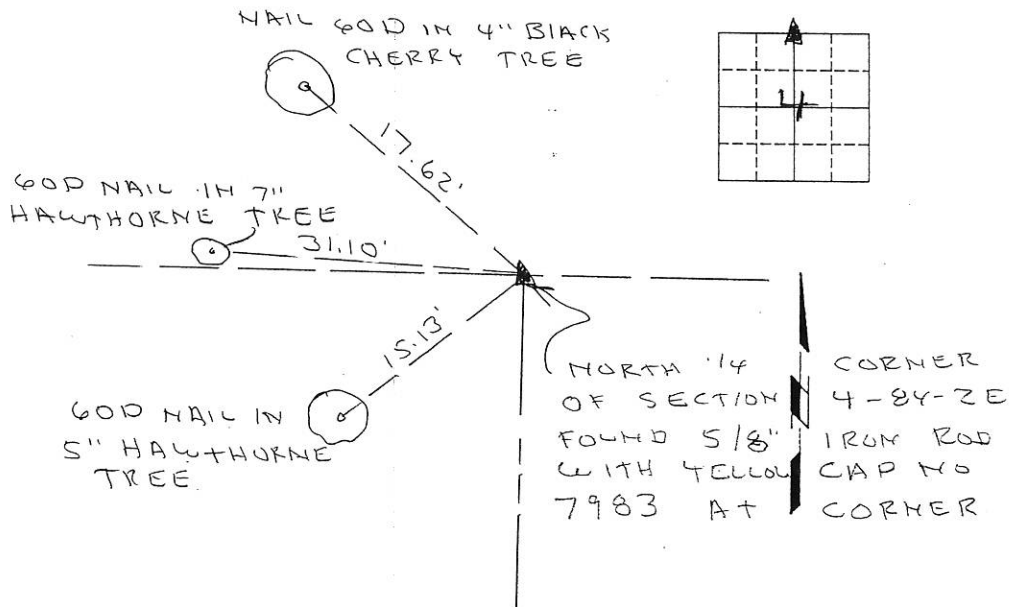 NAIL 60D IN 4" BLACK
CHERRY TREE
4
17.62'
60D NAIL IN 7"
HAWTHORNE TREE
31.10'
15.13'
60D NAIL IN
5" HAWTHORNE
TREE
NORTH 1/4 CORNER
OF SECTION 4-84-2E
FOUND 5/8" IRON ROD
WITH YELLOW CAP NO
7983 AT CORNER